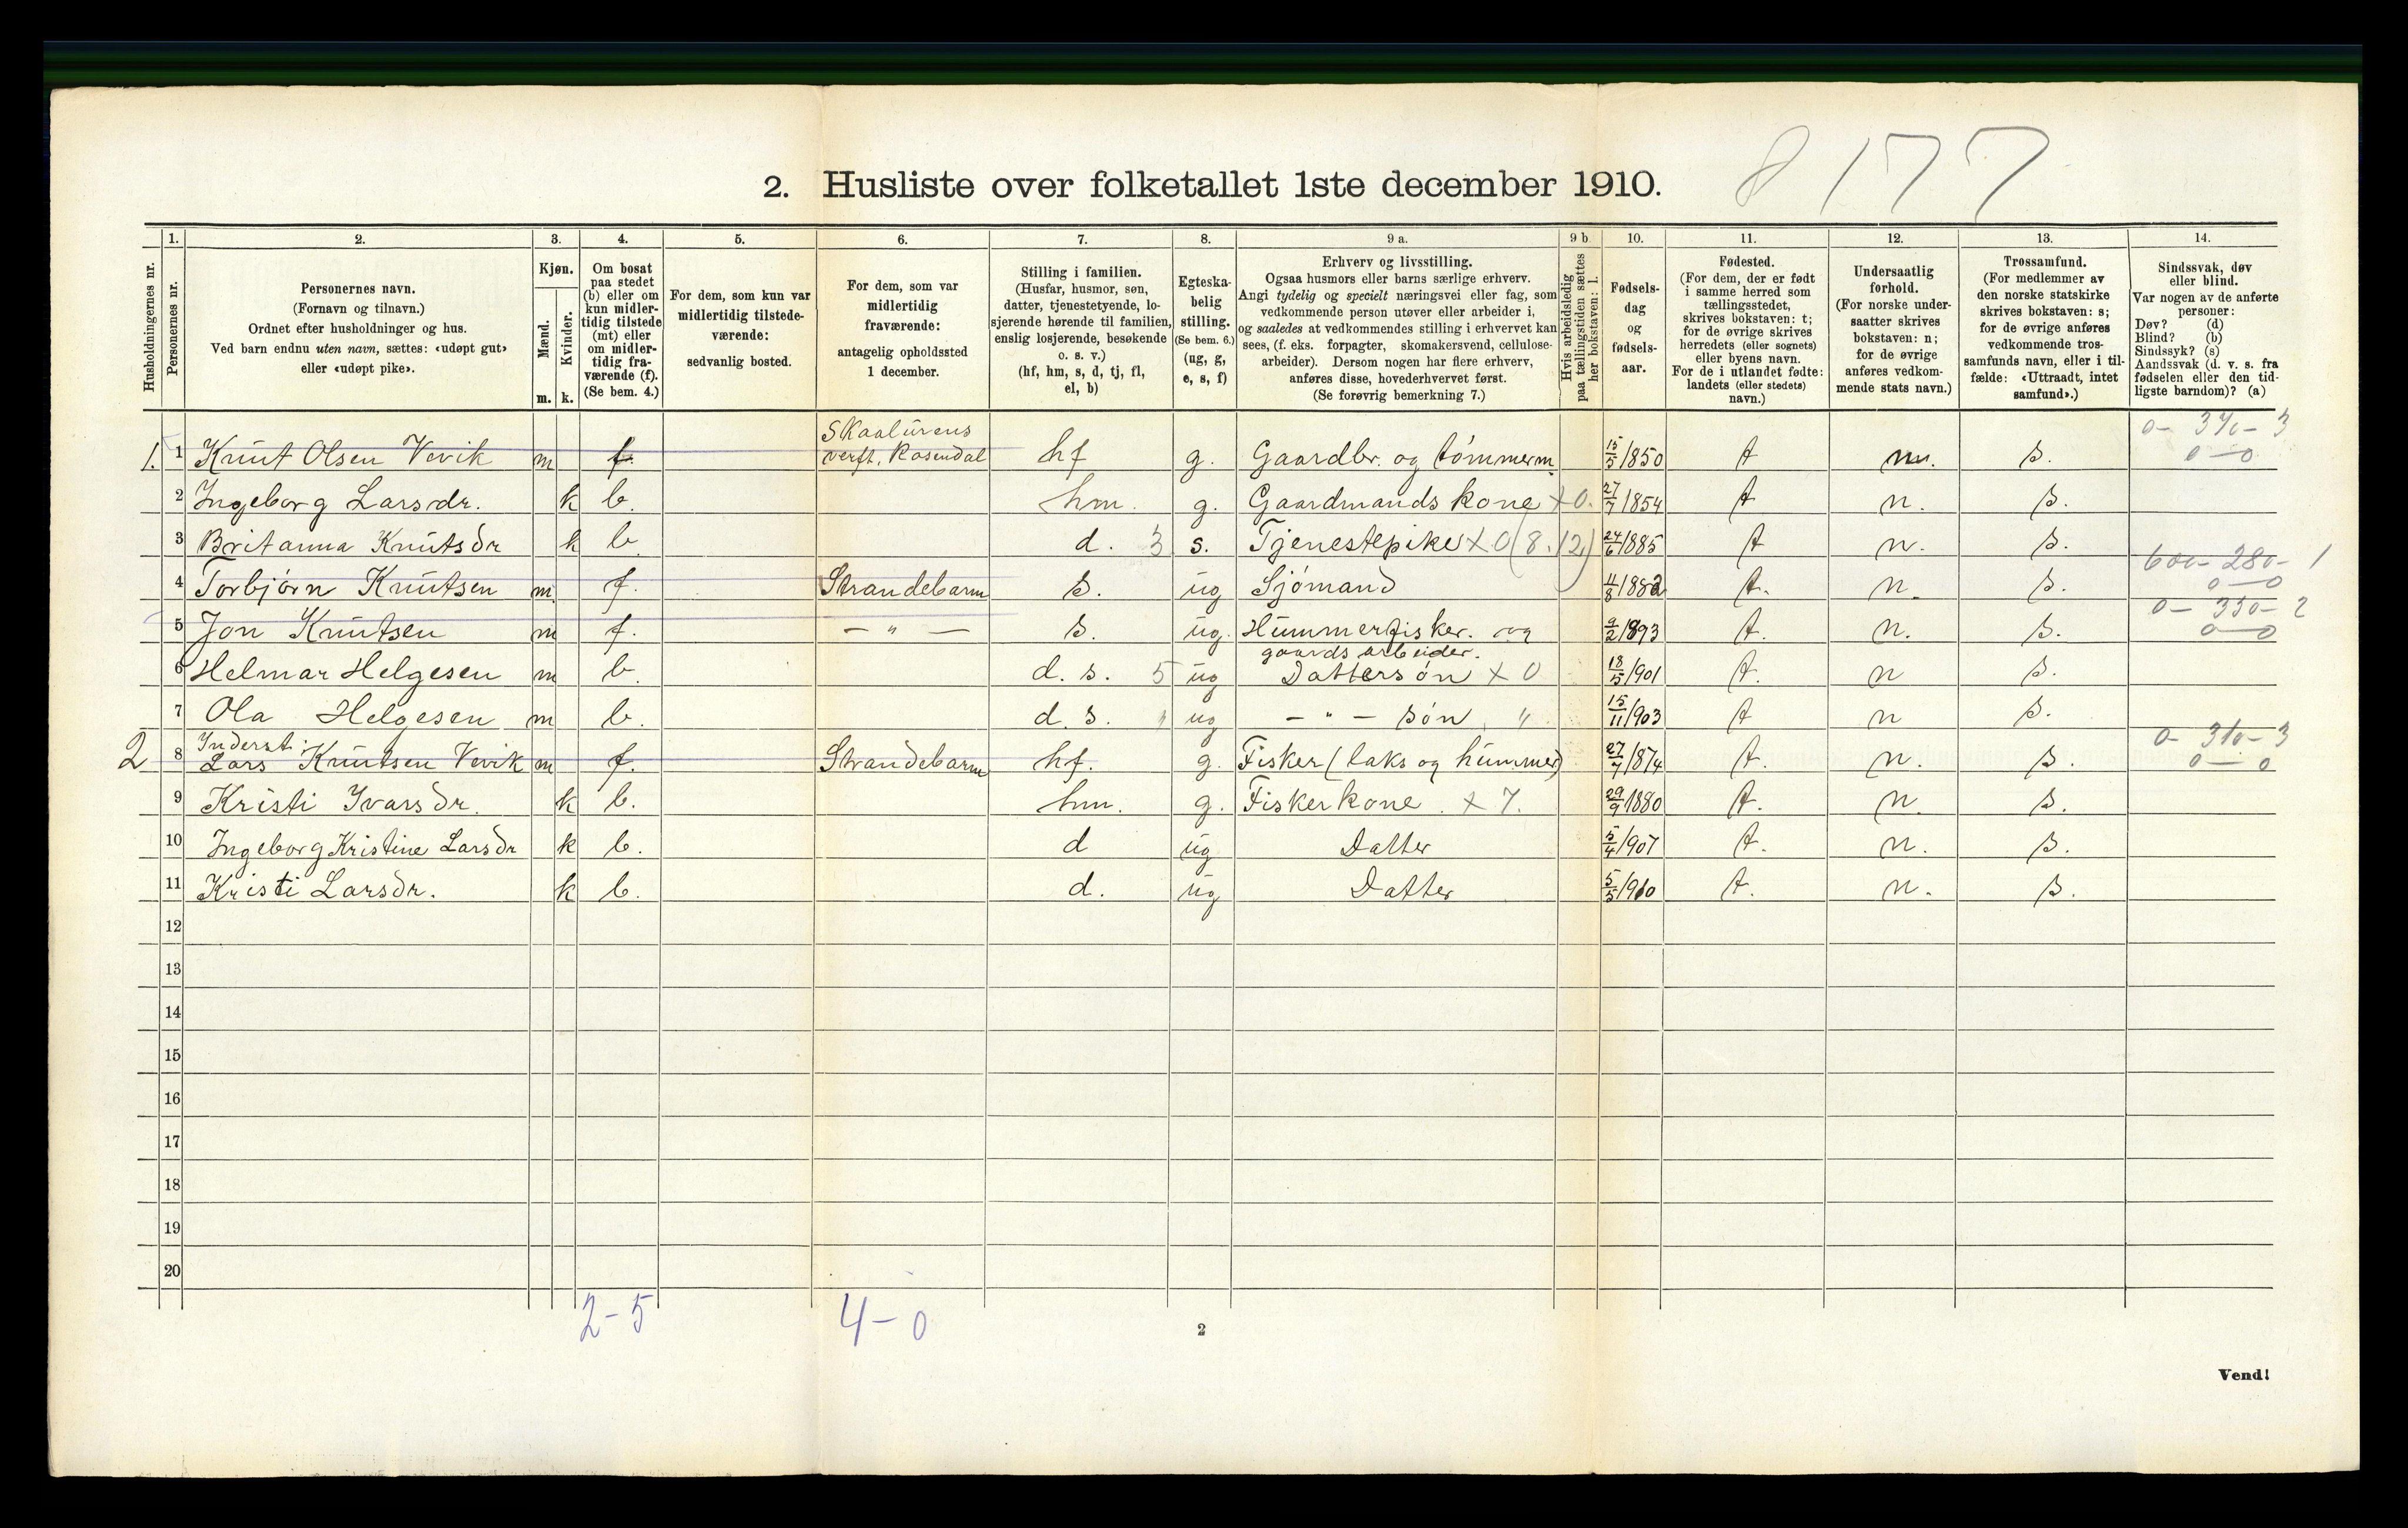 8 177
2. Husliste over folketallet 1ste december 1910.
1. 2. 3. 4. 5. 6. 7. 8. 9 a. 9 b 10. 11. 12. 13. 14.
Husholdningernes nr.
Personernes nr.
Personernes navn.
(Fornavn og tilnavn.)
Ordnet efter husholdninger og hus.
Ved barn endnu uten navn, sættes: «udøpt gut»
eller «udøpt pike».
Kjøn.
Mænd.
Kvinder.
m. k.
Om bosat
paa stedet
(b) eller om
kun midler-
tidig tilstede
(mt) eller
om midler-
tidig fra-
værende (f).
(Se bem. 4.)
For dem, som kun var
midlertidig tilstede-
værende:
sedvanlig bosted.
For dem, som var
midlertidig
fraværende:
antagelig opholdssted
1 december.
Stilling i familien.
(Husfar, husmor, søn,
datter, tjenestetyende, lo-
sjerende hørende til familien,
enslig losjerende, besøkende
o. s. v.)
(hf, hm, s, d, tj, fl,
el, b)
Egteska-
belig
stilling.
(Se bem. 6.)
(ug, g,
e, s, f)
Erhverv og livsstilling.
Ogsaa husmors eller barns særlige erhverv.
Angi tydelig og specielt næringsvei eller fag, som
vedkommende person utøver eller arbeider i,
og saaledes at vedkommendes stilling i erhvervet kan
sees, (f. eks. forpagter, skomakersvend, cellulose-
arbeider). Dersom nogen har flere erhverv,
anføres disse, hovederhvervet først.
(Se forøvrig bemerkning 7.)
Hvis arbeidsledig
paa tællingstiden sættes
her bokstaven: l.
Fødsels-
dag
og
fødsels-
aar.
Fødested.
(For dem, der er født
i samme herred som
tællingsstedet,
skrives bokstaven: t;
for de øvrige skrives
herredets (eller sognets)
eller byens navn.
For de i utlandet fødte:
landets (eller stedets)
navn.)
Undersaatlig
forhold.
(For norske under-
saatter skrives
bokstaven: n;
for de øvrige
anføres vedkom-
mende stats navn.)
Trossamfund.
(For medlemmer av
den norske statskirke
skrives bokstaven: s;
for de øvrige anføres
vedkommende tros-
samfunds navn, eller i til-
fælde: «Uttraadt, intet
samfund».)
Sindssvak, døv
eller blind.
Var nogen av de anførte
personer:
Døv? (d)
Blind? (b)
Sindssyk? (s)
Aandssvak (d. v. s. fra
fødselen eller den tid-
ligste barndom)? (a)
Skaalurens 0- 370- 3
1. 1 Knut Olsen Vevik m f. verft, Rosendal hf g. Gaardbr. og tømmerm. 15/5 1850 t n. s. 0-0
2 Ingeborg Larsdr. k b. hm. g. Gaardmands kone x 0. 27/7 1854 t n. s.
3 Britanna Knutsdr k b d. 3 s. Tjenestepike x 0 (8.12) 24/6 1885 t n. s.
600- 280- 1
4 Torbjørn Knutsen m. f. Strandebarm s. ug Sjømand 4/8 1882 t. n. s. 0-0
0- 330- 2
5 Jon Knutsen m f. - " - s. ug. Hummerfisker. og 9/2 1893 t. n. s. 0-0
gaardsarbeider.
6 Helmar Helgesen m b. d. s. 5 ug Dattersøn x 0 18/5 1901 t. n s.
7 Ola Helgesen m b. d. s. " ug - " - søn " 15/11 1903 t n s.
Inderst: 0- 310- 3
2 8 Lars Knutsen Vevik m f. Strandebarm hf. g. Fisker (laks og hummer) 27/7 1874 t. n. s. 0-0
9 Kristi Ivarsdr. k b. hm. g. Fiskerkone. x 7. 29/9 1880 t. n. s.
10 Ingeborg Kristine Larsdr k b. d ug Datter 5/4 1907 t. n. s.
11 Kristi Larsdr. k b. d. ug Datter 5/5 1910 t. n. s.
12
13
14
15
16
17
18
19
20
2-5 4-0
2
Vend!